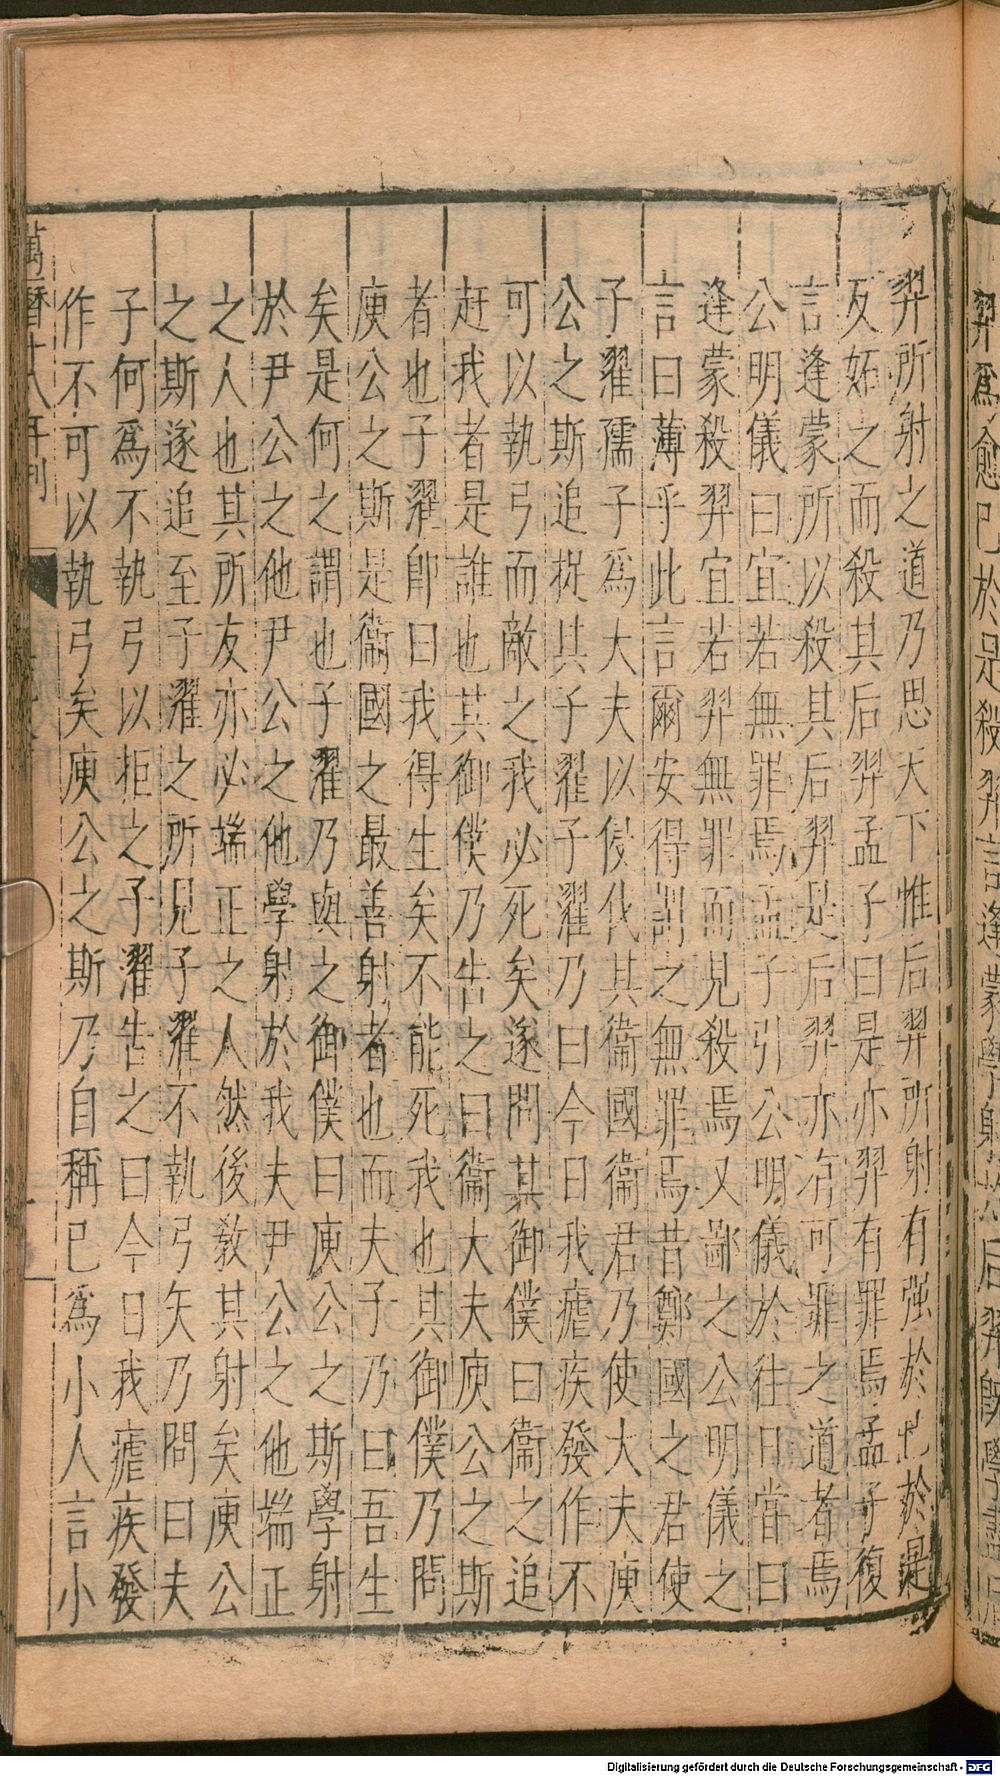 羿所射之道乃思天下惟后羿所射有强於己於是
反妬之而殺其后羿孟子曰是亦羿有罪焉孟子復
言逢蒙所以殺其后羿是后羿亦有可罪之道者焉
公明儀曰宜若無罪焉孟子引公明儀於往日嘗曰
逢蒙殺羿宜若羿無罪而見殺焉又鄙之公明儀之
言曰薄乎此言爾安得謂之無罪焉昔鄭國之君使
子濯孺子爲大夫以侵伐其衞國衞君乃使大夫庾
公之斯追捉其子濯子濯乃曰今日我瘧疾發作不
可以執弓而敵之我必死矣遂問其御僕曰衞之追
赶我者是誰也其御僕乃告之曰衞大夫庾公之斯
者也子濯卽曰我得生矣不能死我也其御僕乃問
庾公之斯是衞國之最善射者也而夫子乃曰吾生
矣是何之謂也子濯乃與之御僕曰庾公之斯學射
於尹公之他尹公之他學射於我夫尹公之他端正
之人也其所友亦必端正之人然後敎其射矣庾公
之斯遂追至子濯之所見子濯不執弓矢乃問曰夫
子何爲不執弓以拒之子濯告之曰今日我瘧疾發
作不可以執弓矣庾公之斯乃自稱己爲小人言小
萬曆十八年刊
羿爲愈己於是殺羿言逢蒙學射於后羿旣學盡后
Digitalisierung gefördert durch die Deutsche Forschungsgemeinschaft - DFG